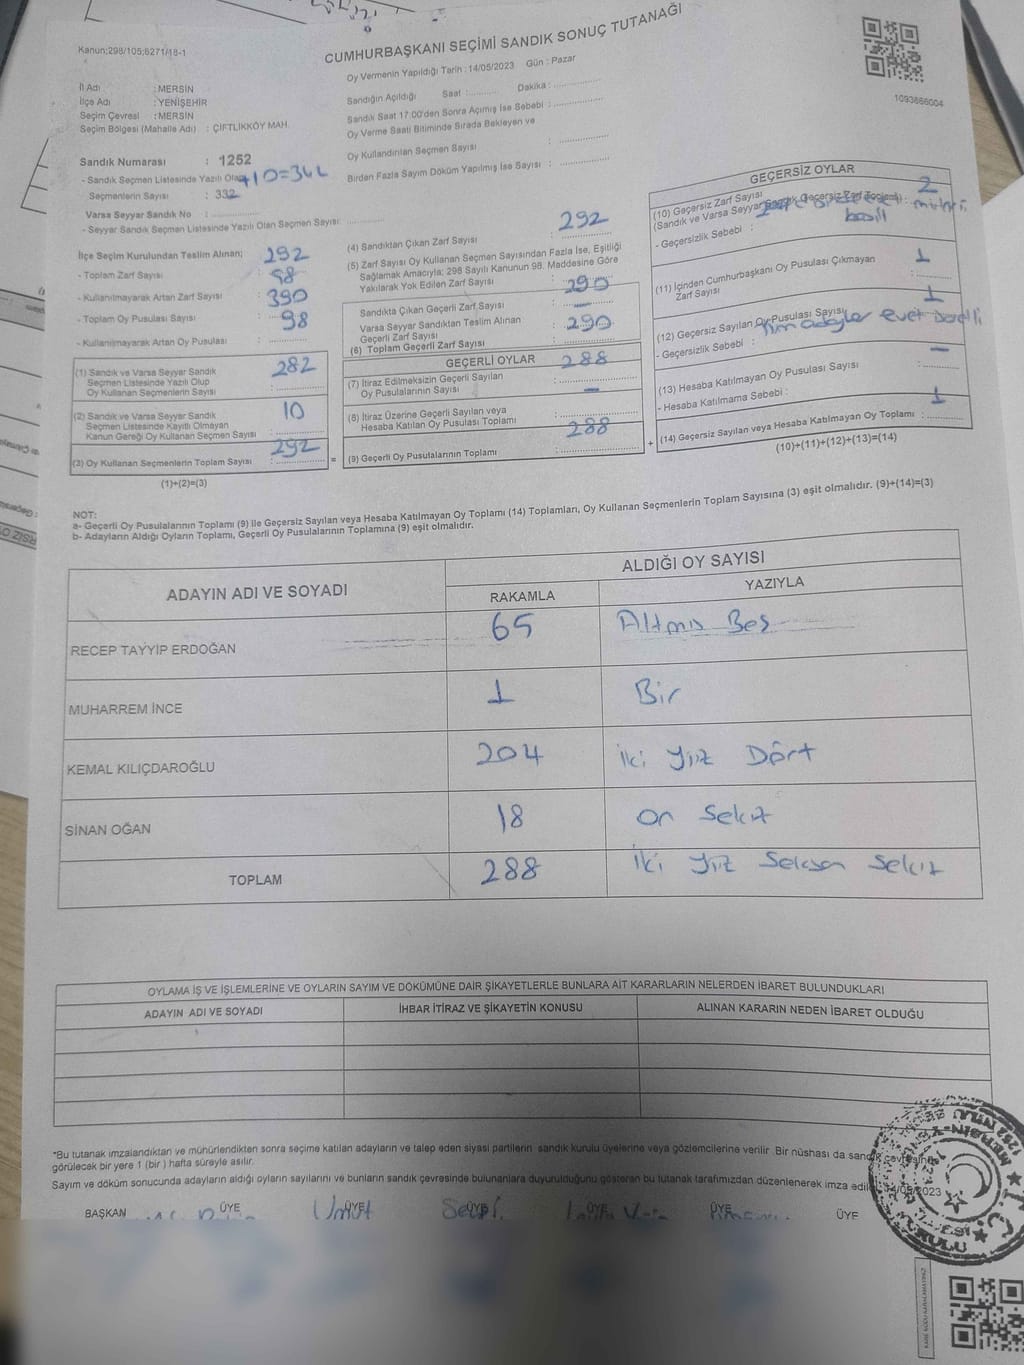 Kanun;298/105;6271/18-1
CUMHURBAŞKANI SEÇİMİ SANDIK SONUÇ TUTANAĞI
Oy Vermenin Yapıldığı Tarih : 14/05/2023 Gün : Pazar
Sandığın Açıldığı Saat :.......... Dakika :...............
Sandık Saat 17.00'den Sonra Açılmış İse Sebebi :...............
Oy Verme Saati Bitiminde Sırada Bekleyen ve
Oy Kullandırılan Seçmen Sayısı :...............
Birden Fazla Sayım Döküm Yapılmış İse Sayısı :...............
1093866004
İl Adı : MERSİN
İlçe Adı : YENİŞEHİR
Seçim Çevresi : MERSİN
Seçim Bölgesi (Mahalle Adı) : ÇİFTLİKKÖY MAH.
Sandık Numarası : 1252
- Sandık Seçmen Listesinde Yazılı Olan +10=342
Seçmenlerin Sayısı : 332
Varsa Seyyar Sandık No :...............
- Seyyar Sandık Seçmen Listesinde Yazılı Olan Seçmen Sayısı:...............
İlçe Seçim Kurulundan Teslim Alınan; 292
- Toplam Zarf Sayısı : 98
- Kullanılmayarak Artan Zarf Sayısı : 390
- Toplam Oy Pusulası Sayısı : 98
- Kullanılmayarak Artan Oy Pusulası :...............
(1) Sandık ve Varsa Seyyar Sandık 282
Seçmen Listesinde Yazılı Olup
Oy Kullanan Seçmenlerin Sayısı :...............
(2) Sandık ve Varsa Seyyar Sandık 10
Seçmen Listesinde Kayıtlı Olmayan
Kanun Gereği Oy Kullanan Seçmen Sayısı :...............
(3) Oy Kullanan Seçmenlerin Toplam Sayısı : 292
(1)+(2)=(3)
=
(4) Sandıktan Çıkan Zarf Sayısı : 292
(5) Zarf Sayısı Oy Kullanan Seçmen Sayısından Fazla İse, Eşitliği
Sağlamak Amacıyla; 298 Sayılı Kanunun 98. Maddesine Göre
Yakılarak Yok Edilen Zarf Sayısı : 290
Sandıkta Çıkan Geçerli Zarf Sayısı : —
Varsa Seyyar Sandıktan Teslim Alınan
Geçerli Zarf Sayısı : 290
(6) Toplam Geçerli Zarf Sayısı :...............
GEÇERLİ OYLAR 288
(7) İtiraz Edilmeksizin Geçerli Sayılan
Oy Pusulalarının Sayısı : —
(8) İtiraz Üzerine Geçerli Sayılan veya
Hesaba Katılan Oy Pusulası Toplamı :...............
288
(9) Geçerli Oy Pusulalarının Toplamı :...............
+
GEÇERSİZ OYLAR
(10) Geçersiz Zarf Sayısı 2
(Sandık ve Varsa Seyyar Sandık Geçersiz Zarf Toplamı) :
- Geçersizlik Sebebi :
(11) İçinden Cumhurbaşkanı Oy Pusulası Çıkmayan 1
Zarf Sayısı :...............
(12) Geçersiz Sayılan Oy Pusulası Sayısı : 1
- Geçersizlik Sebebi : Tüm adaylar evet
(13) Hesaba Katılmayan Oy Pusulası Sayısı : —
- Hesaba Katılmama Sebebi :
(14) Geçersiz Sayılan veya Hesaba Katılmayan Oy Toplamı : 1
(10)+(11)+(12)+(13)=(14)
NOT:
a- Geçerli Oy Pusulalarının Toplamı (9) ile Geçersiz Sayılan veya Hesaba Katılmayan Oy Toplamı (14) Toplamları, Oy Kullanan Seçmenlerin Toplam Sayısına (3) eşit olmalıdır. (9)+(14)=(3)
b- Adayların Aldığı Oyların Toplamı, Geçerli Oy Pusulalarının Toplamına (9) eşit olmalıdır.
ADAYIN ADI VE SOYADI
ALDIĞI OY SAYISI
RAKAMLA YAZIYLA
RECEP TAYYİP ERDOĞAN 65 Altmış Beş
MUHARREM İNCE 1 Bir
KEMAL KILIÇDAROĞLU 204 iki yüz Dört
SİNAN OĞAN 18 on sekiz
TOPLAM 288 iki yüz Seksen Sekiz
OYLAMA İŞ VE İŞLEMLERİNE VE OYLARIN SAYIM VE DÖKÜMÜNE DAİR ŞİKAYETLERLE BUNLARA AİT KARARLARIN NELERDEN İBARET BULUNDUKLARI
ADAYIN ADI VE SOYADI İHBAR İTİRAZ VE ŞİKAYETİN KONUSU ALINAN KARARIN NEDEN İBARET OLDUĞU
*Bu tutanak imzalandıktan ve mühürlendikten sonra seçime katılan adayların ve talep eden siyasi partilerin sandık kurulu üyelerine veya gözlemcilerine verilir. Bir nüshası da sandık çevresinde
görülecek bir yere 1 (bir ) hafta süreyle asılır.
Sayım ve döküm sonucunda adayların aldığı oyların sayılarını ve bunların sandık çevresinde bulunanlara duyurulduğunu gösteren bu tutanak tarafımızdan düzenlenerek imza edildi. 14/05/2023
BAŞKAN ÜYE ÜYE ÜYE ÜYE ÜYE ÜYE
Umut